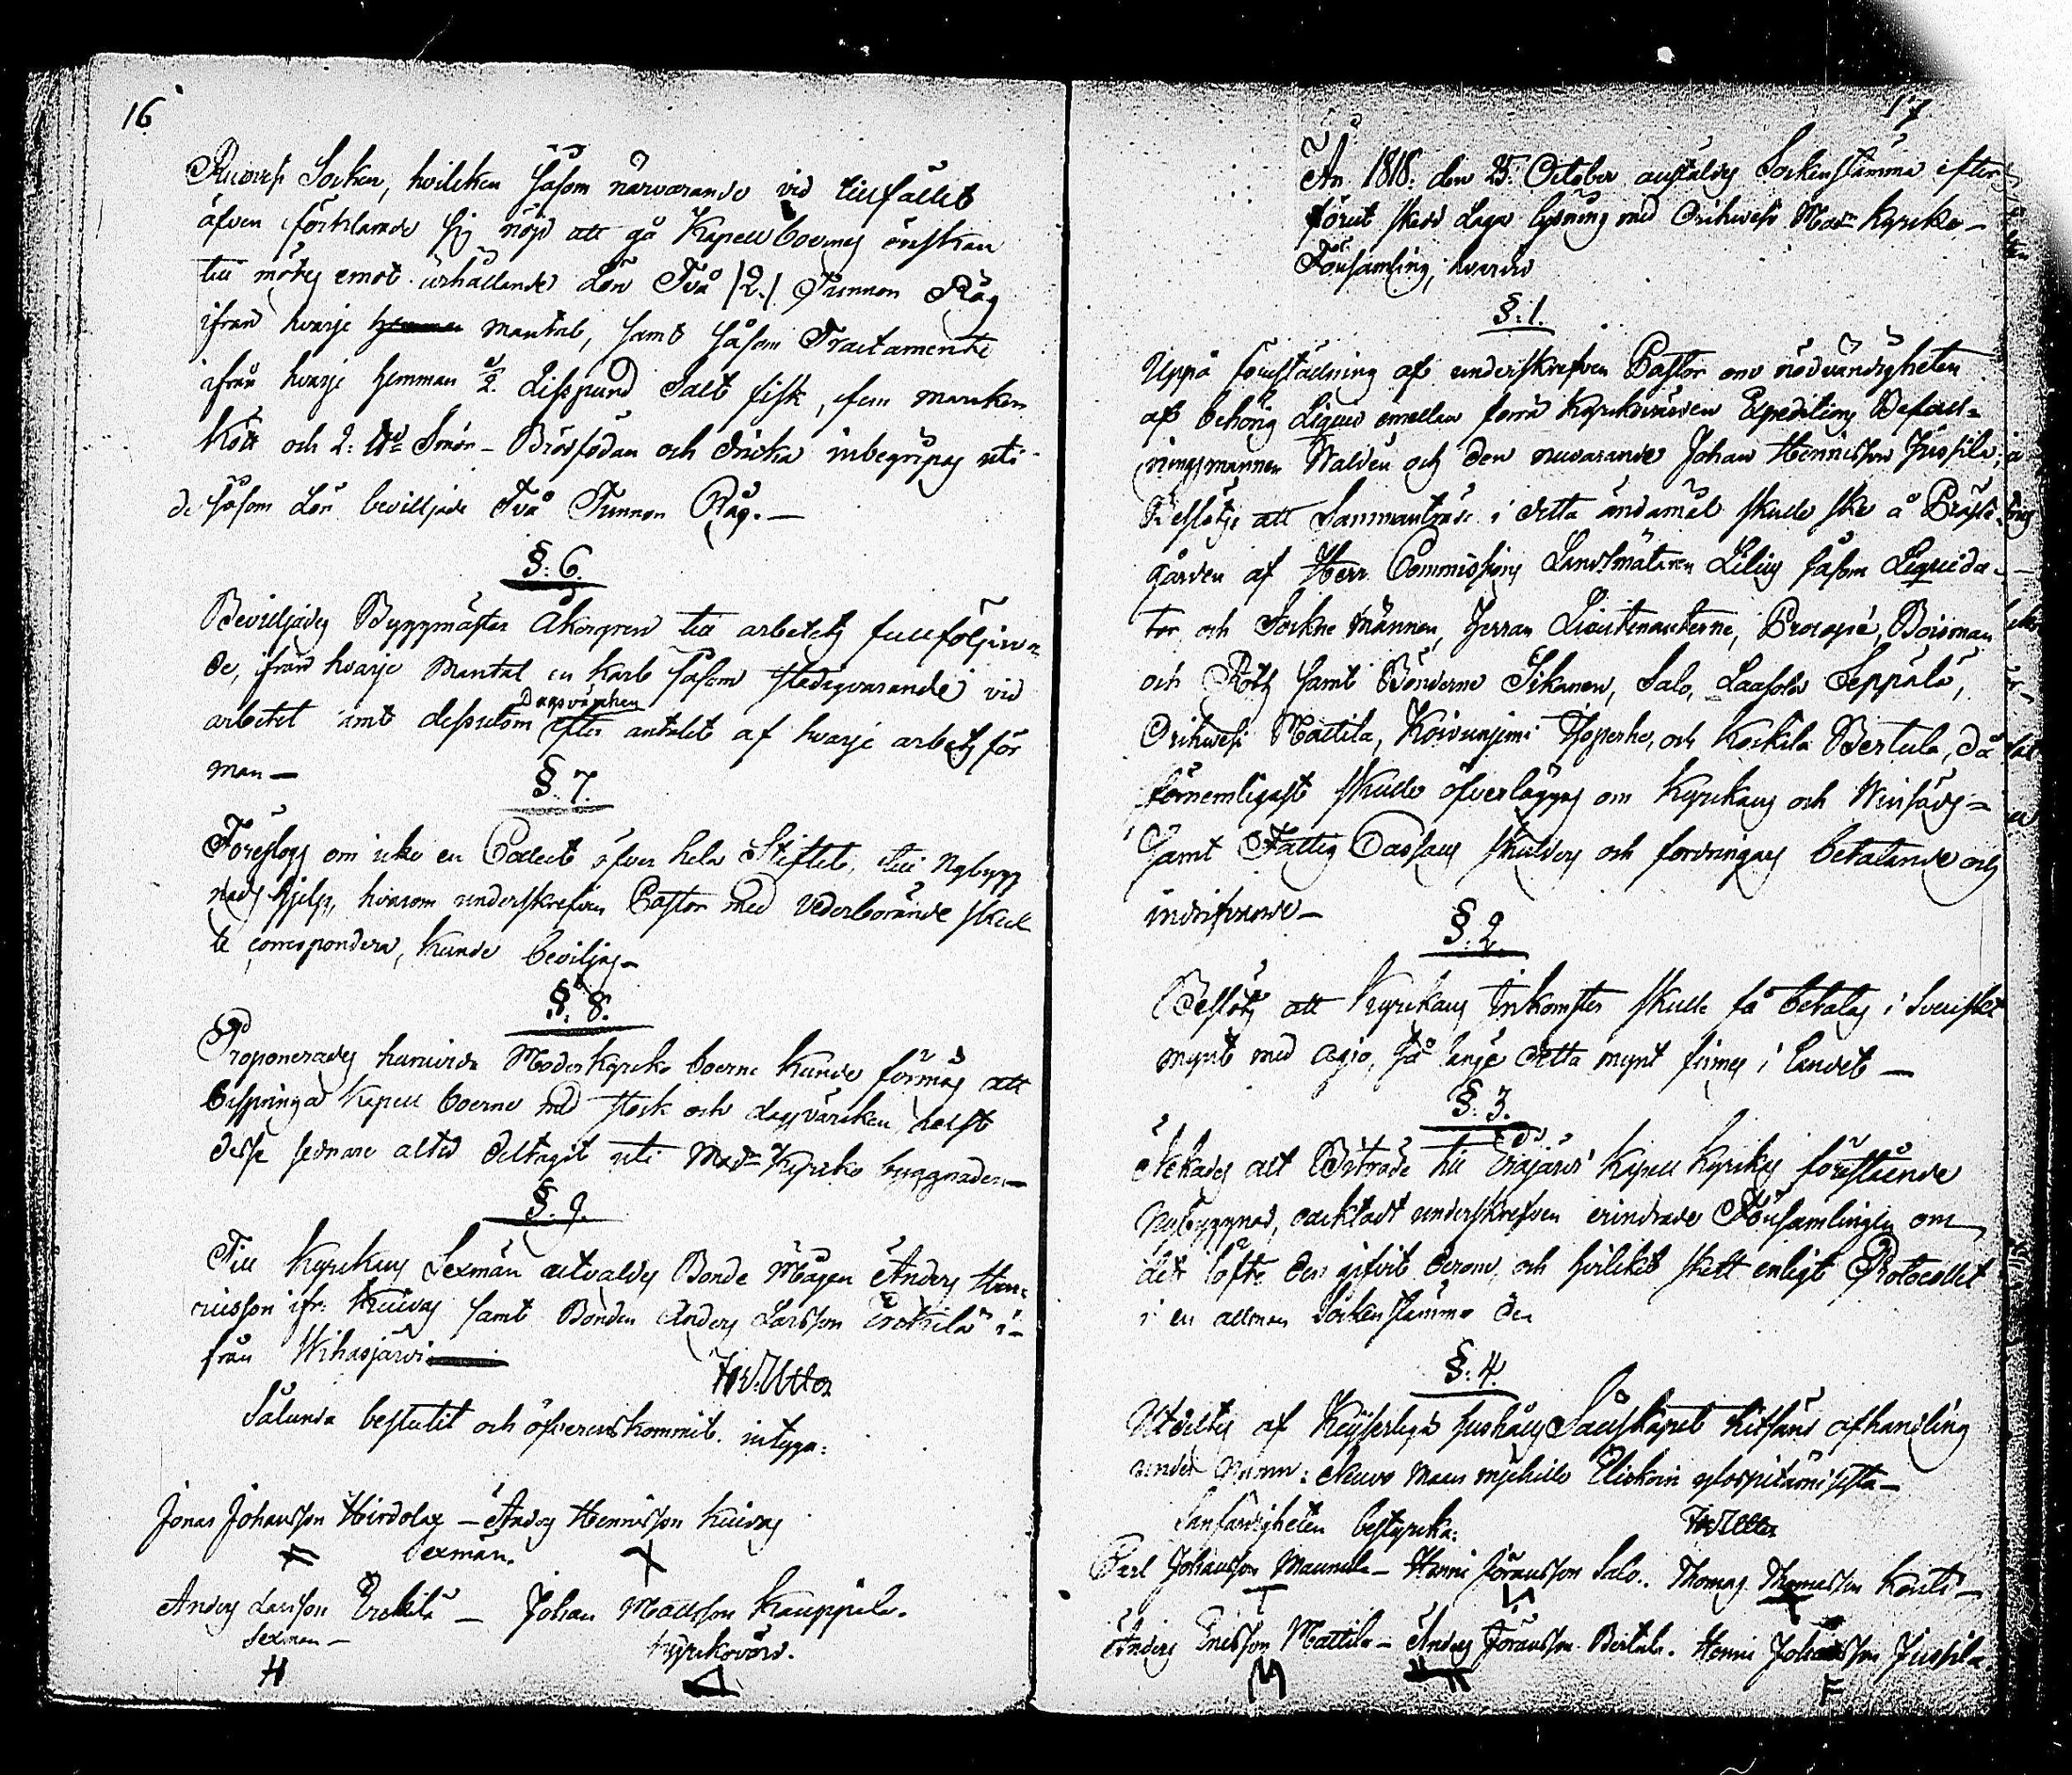 16
Ruovesi Socken, hvilcken såsom närvarande vid tillfället
äfven förklarade sig nöjd att gå Kapellboernes önskan
till mötes emot erhållande Lön Två /2./ Tunnor Råg
ifrån hvarje hemman mantal, samt såsom Tractamente
ifrån hvarje hemman 1/2 Lispund Salt fisk, fem marcker
Kött och 2: Smör - Brödfödan och dricka inbegripes uti
de såsom Lön beviljade Två Tunnor Råg. —
§: 6.
Beviljades Byggmästar Åkergren till arbetets fullföljan=
de, ifrån hvarje Mantal en Karl såsom städigvarande vid
Dagsvärcken
arbetet samt dessutom efter antalet af hvarje arbets för
man —
§ 7.
Föreslogs om icke en Collect öfver hela Stiftet, till Nybygg
nads hjelp, hvarom underskrefven Pastor med vederbörande skul
le correspondera, kunde beviljas —
§: 8.
Proponerades huruvida Moderkyrko boerne kunde förmås att
bispringa Kapell boerne med stock och dagsvärcken, helst
desse sednare altid deltagit uti Modr Kyrko byggnaden —
§. 9.
Till Kyrckans Sexmän utvaldes Bonde Mågen Anders Hen=
ricsson ifr: Kuivas samt Bonden Anders Larsson Erckilä i-
från Wihasjärvi —
Sålunda beslutit och öfverenskommit intyga:
Jonas Johansson Hirdolax — Anders Henricsson Kuivas
Sexmän.
Anders Larsson Erckilä — Johan Mattsson Kauppila.
Sexman — Kyrckovärd.
17
År 1818: den 25: October anstäldes Sockenstämma efter
förut skedd Laga lysning med Orihvesi Modr Kyrcko-
Församling, hvarvid
§: 1.
Uppå föreställning af underskrefven Pastor om nödvändigheten
af behörig Liquid emellan förra Kyrckovärden Expeditions Befall=
ningsmannen Walden och den nuvarande Johan Henricsson Jussila,
Beslöts att Sammanträde i detta ändamål skulle ske å Präste
gården af Herr Commissions Landtmätaren Lilius såsom Liquida-
tor, och Sockne Männen, Herrar Lieutenanterne, Procopé, Boisman
och Roth samt Bönderne Sikanen, Salo, Laasola Seppälä,
Orihvesi Mattila, Koivuniemi Hoperho, och Kockila Bertula, då
förnemligast skulle öfverläggas om Kyrckans och Winsäds=
Samt Fattig Cassans skulder och fordringars betalande och
indrifvande —
§. 2.
Beslöts att Kyrckans Inkomster skulle få betalas i Svenskt
mynt med agio, så länge detta mynt finnes i Landet —
§. 3.
Nekades alt Biträde till Eräjärvi Kapell Kyrckas förestående
Nybyggnad, oacktadt underskrefven erindrade Församlingen om
det löfte den gifvit derom, och hvilket skett enligt Protocollet
i en allmän Sockenstämma den
§: 4.
Utdeltes af Keijserliga hushålls Sällskapet hitsänd afhandling
under namn: Neuvo Maan miehille
Sanfärdigheten bestyrcka:
Carl Johansson Maunula — Henric Jöransson Salo. Thomas Thomasson Kouti —
Anders Ericsson Mattila — Anders Jöransson Bertula. Henric Johansson Jussila.